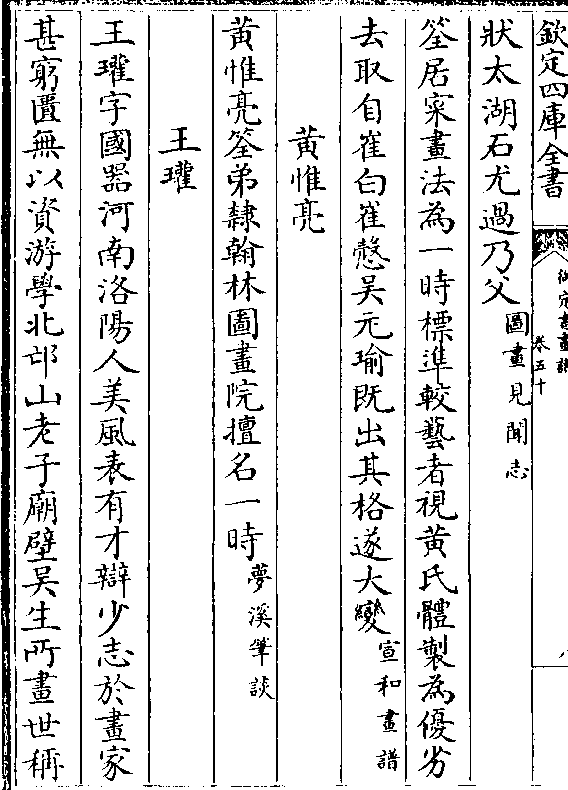 欽定四庫全書
御定書畫譜
卷五十
狀太湖石尤過乃父圖畫見聞志
筌居寀畫法為一時標準較藝者視黃氏體製為優劣
去取自崔白崔慤吳元瑜既出其格遂大變宣和畫譜
黃惟亮
黃惟亮筌弟隸翰林圖畫院擅名一時夢溪筆談
王瓘
王瓘字國器河南洛陽人美風表有才辯少志於畫家
甚窮匱無以資游學北邙山老子廟壁吳生所畫世稱